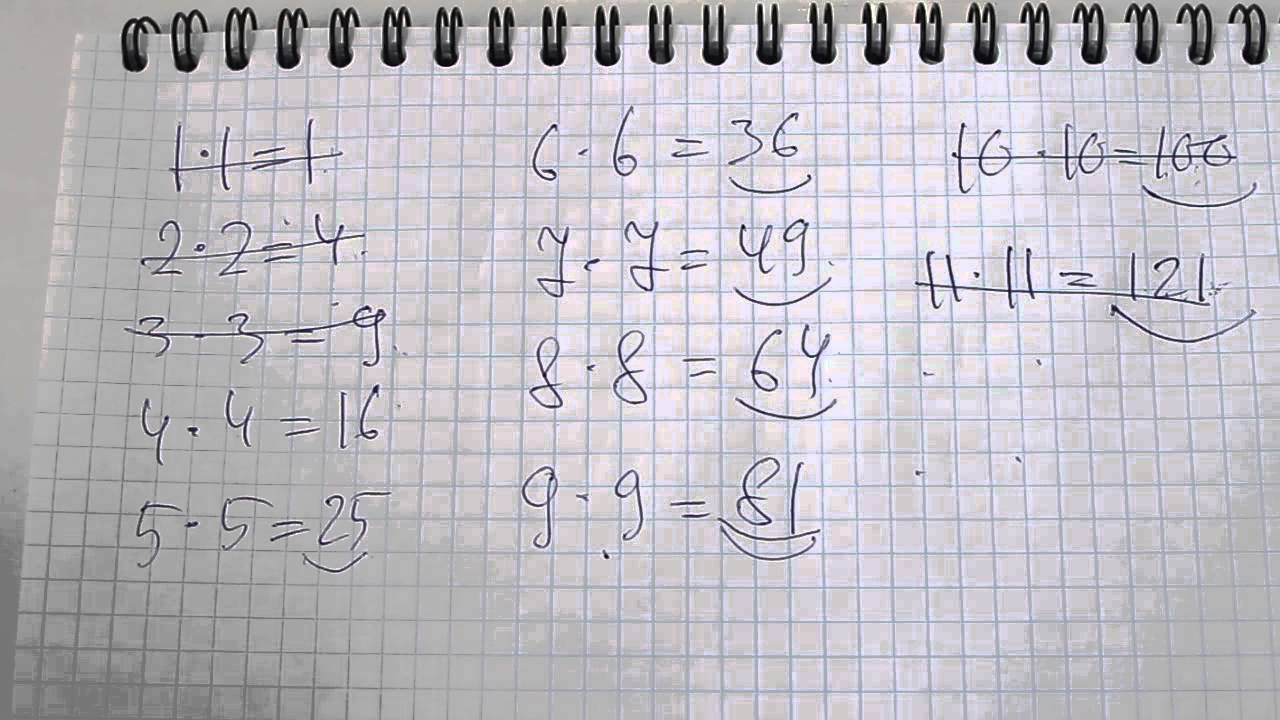 1·1=1
2·2=4
3·3=9
4·4=16
5·5=25
6·6=36
7·7=49
8·8=64
9·9=81
10·10=100
11·11=121